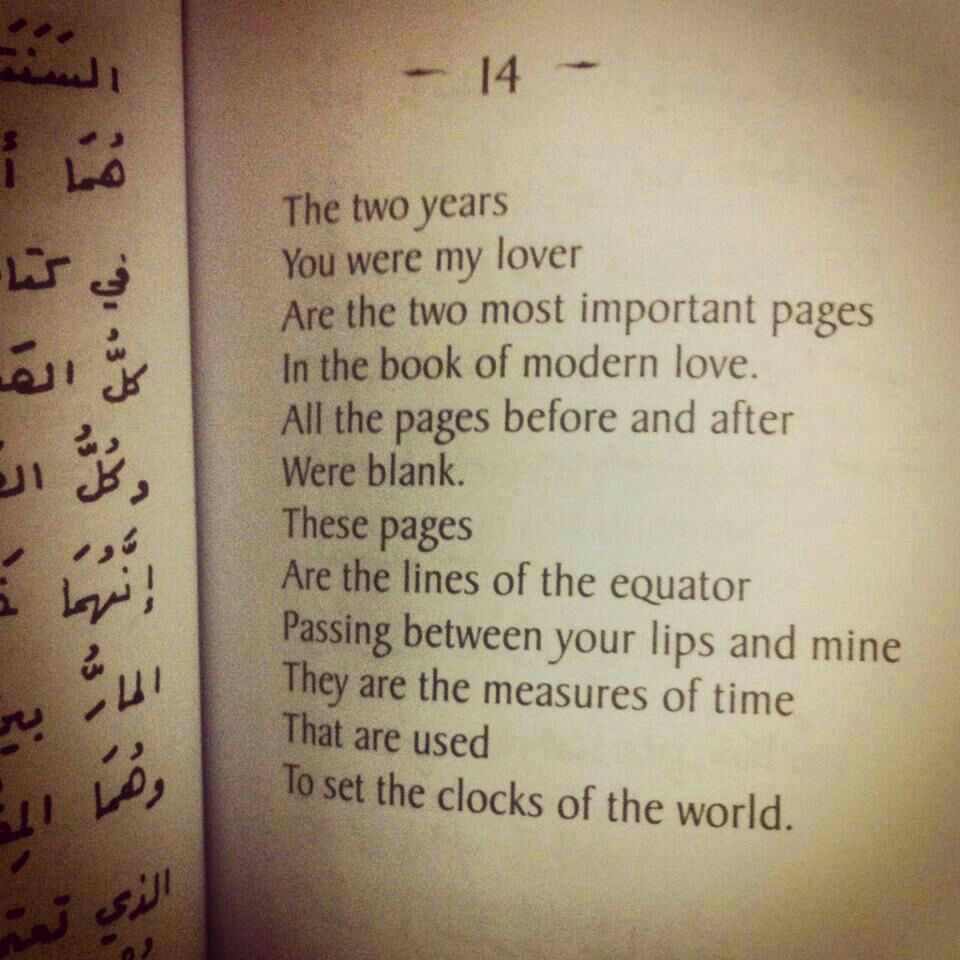 السَنَتَ
هُمَا
في
كلُّ
وكُلُّ
إنَّهُمَا
المارُّ
وهُمَا
الذي
14
The two years
You were my lover
Are the two most important pages
In the book of modern love.
All the pages before and after
Were blank.
These pages
Are the lines of the equator
Passing between your lips and mine
They are the measures of time
That are used
To set the clocks of the world.